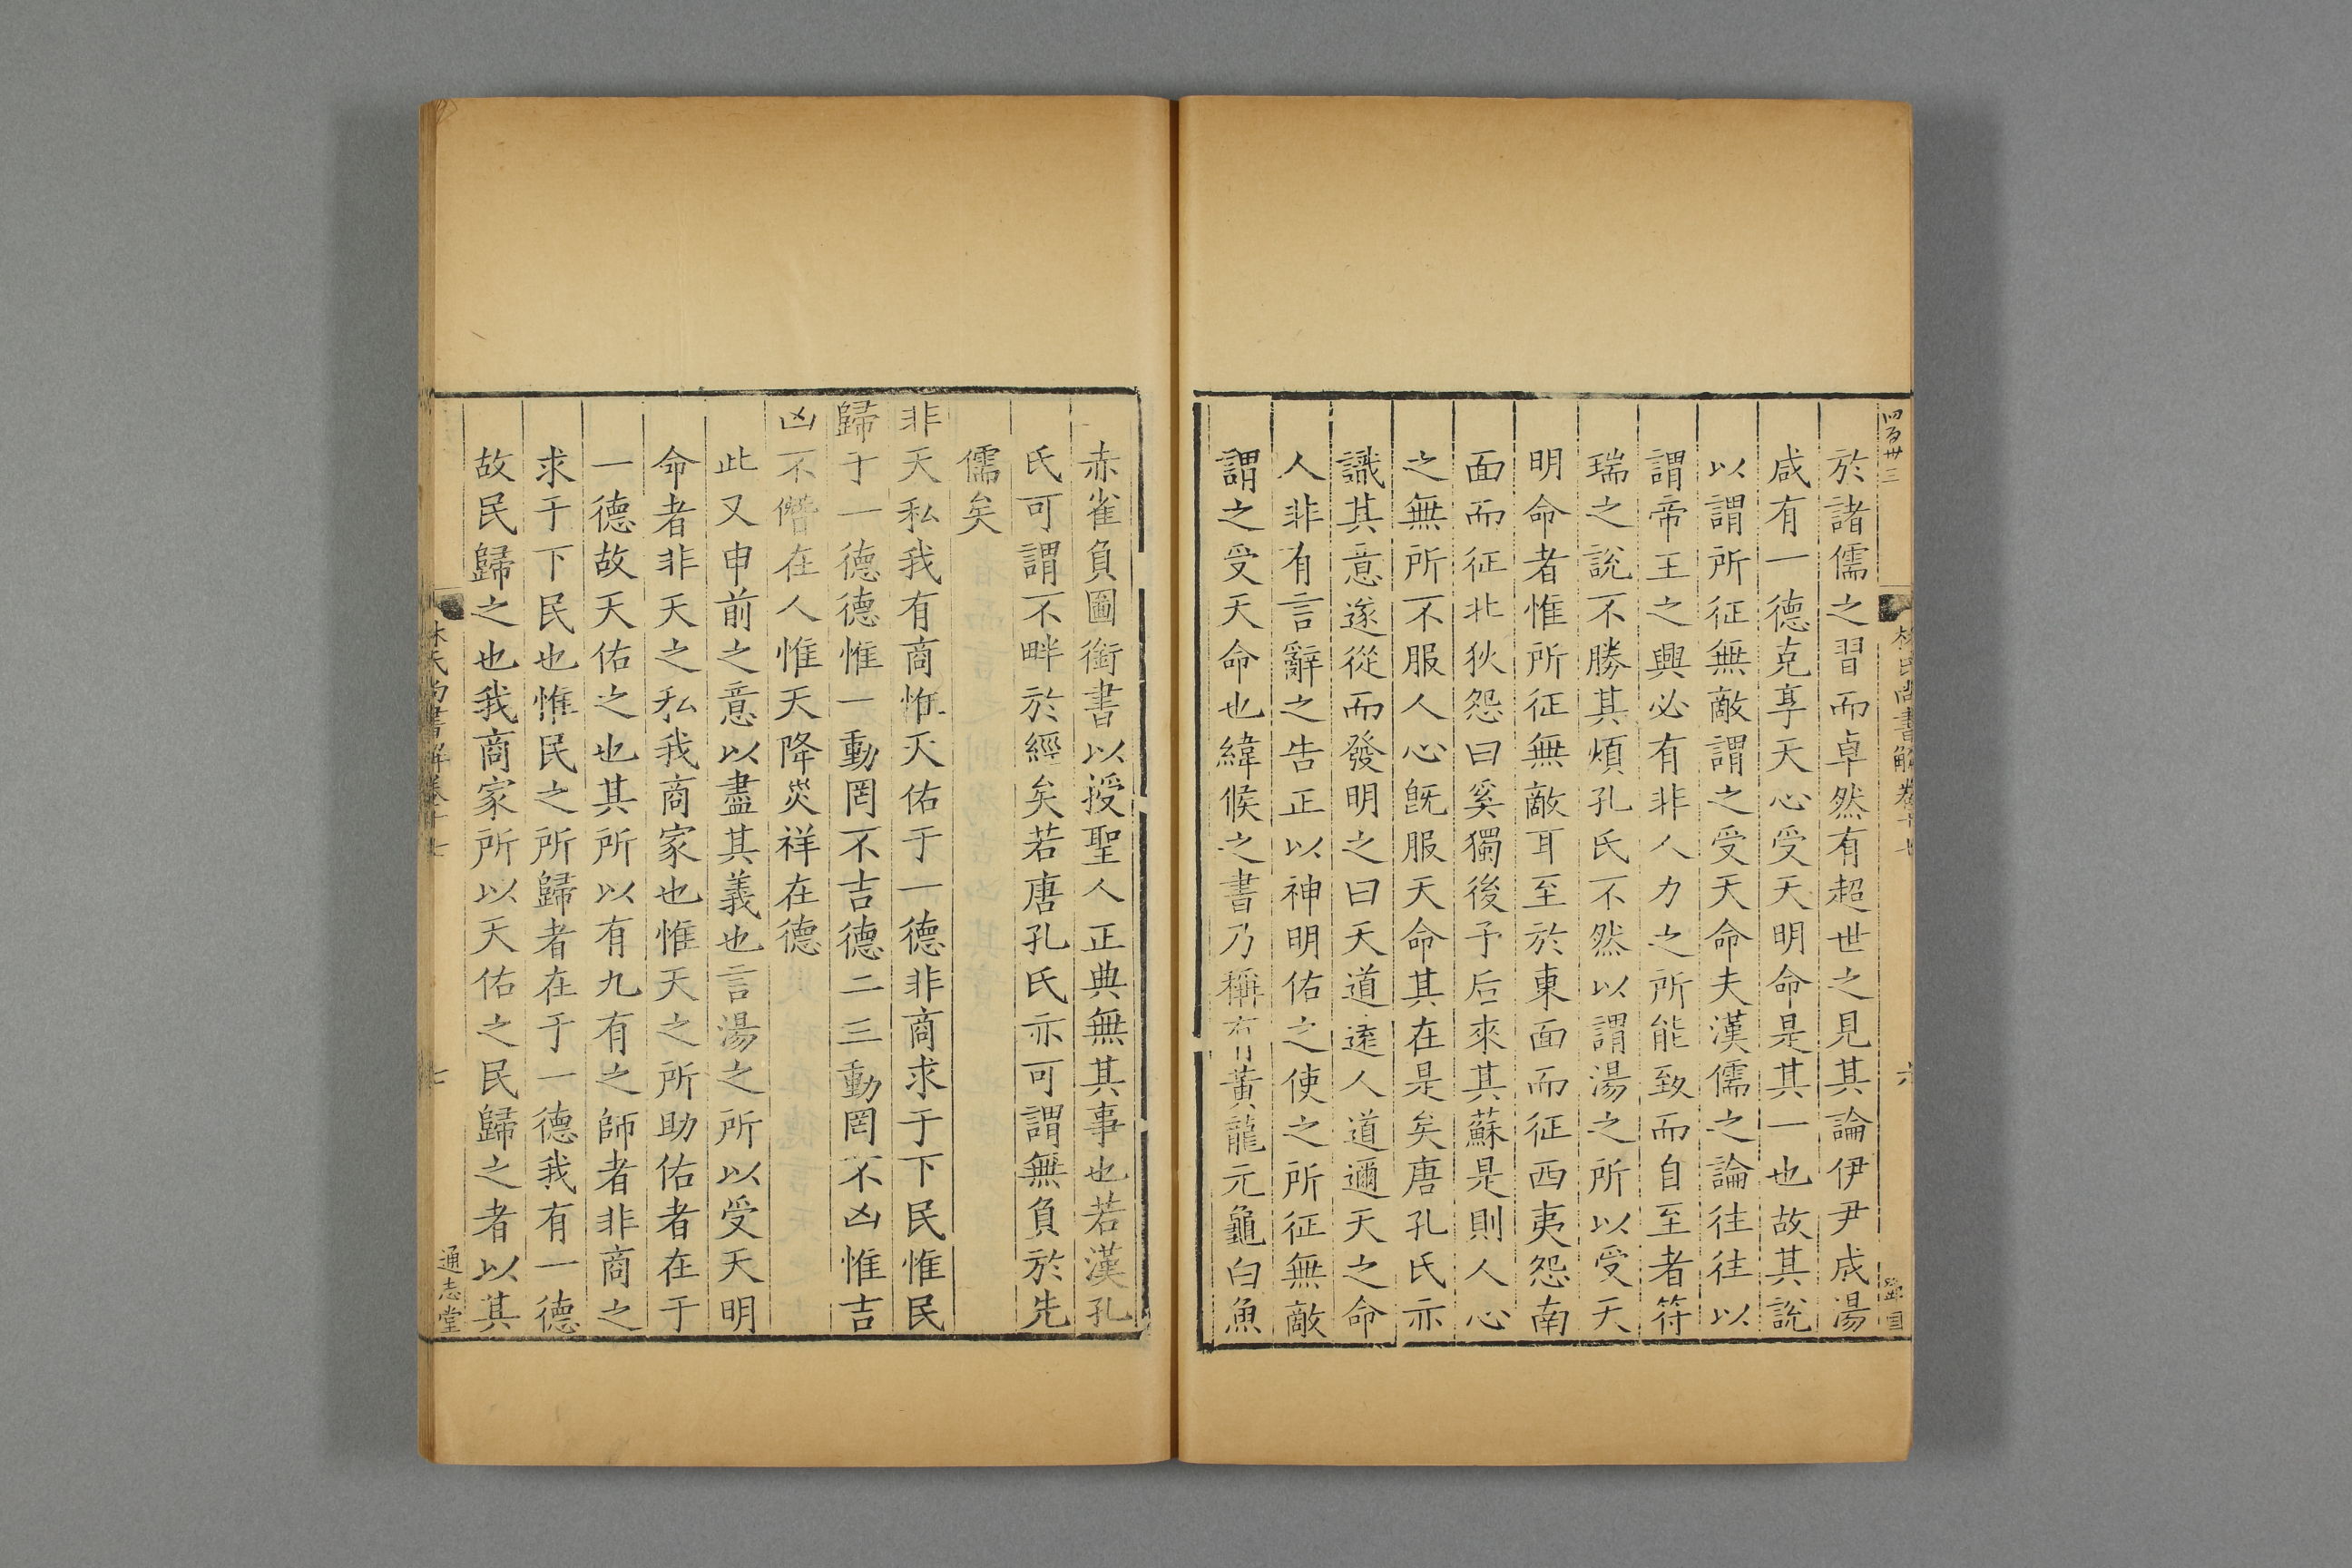 四百卅三
林氏尚書解卷十七
六
於諸儒之習而卓然有超世之見其論伊尹成湯
咸有一德克享天心受天明命是其一也故其說
以謂所征無敵謂之受天命夫漢儒之論往往以
謂帝王之興必有非人力之所能致而自至者符
瑞之說不勝其煩孔氏不然以謂湯之所以受天
明命者惟所征無敵耳至於東面而征西夷怨南
面而征北狄怨曰奚獨後予后來其蘇是則人心
之無所不服人心既服天命其在是矣唐孔氏亦
識其意遂從而發明之曰天道遠人道邇天之命
人非有言辭之告正以神明佑之使之所征無敵
謂之受天命也緯候之書乃稱有黃龍元龜白魚
赤雀負圖銜書以授聖人正典無其事也若漢孔
氏可謂不畔於經矣若唐孔氏亦可謂無負於先
儒矣
非天私我有商惟天佑于一德非商求于下民惟民
歸于一德德惟一動罔不吉德二三動罔不凶惟吉
凶不僭在人惟天降災祥在德
此又申前之意以盡其義也言湯之所以受天明
命者非天之私我商家也惟天之所助佑者在于
一德故天佑之也其所以有九有之師者非商之
求于下民也惟民之所歸者在于一德我有一德
故民歸之也我商家所以天佑之民歸之者以其
林氏尚書解卷十七
七
通志堂